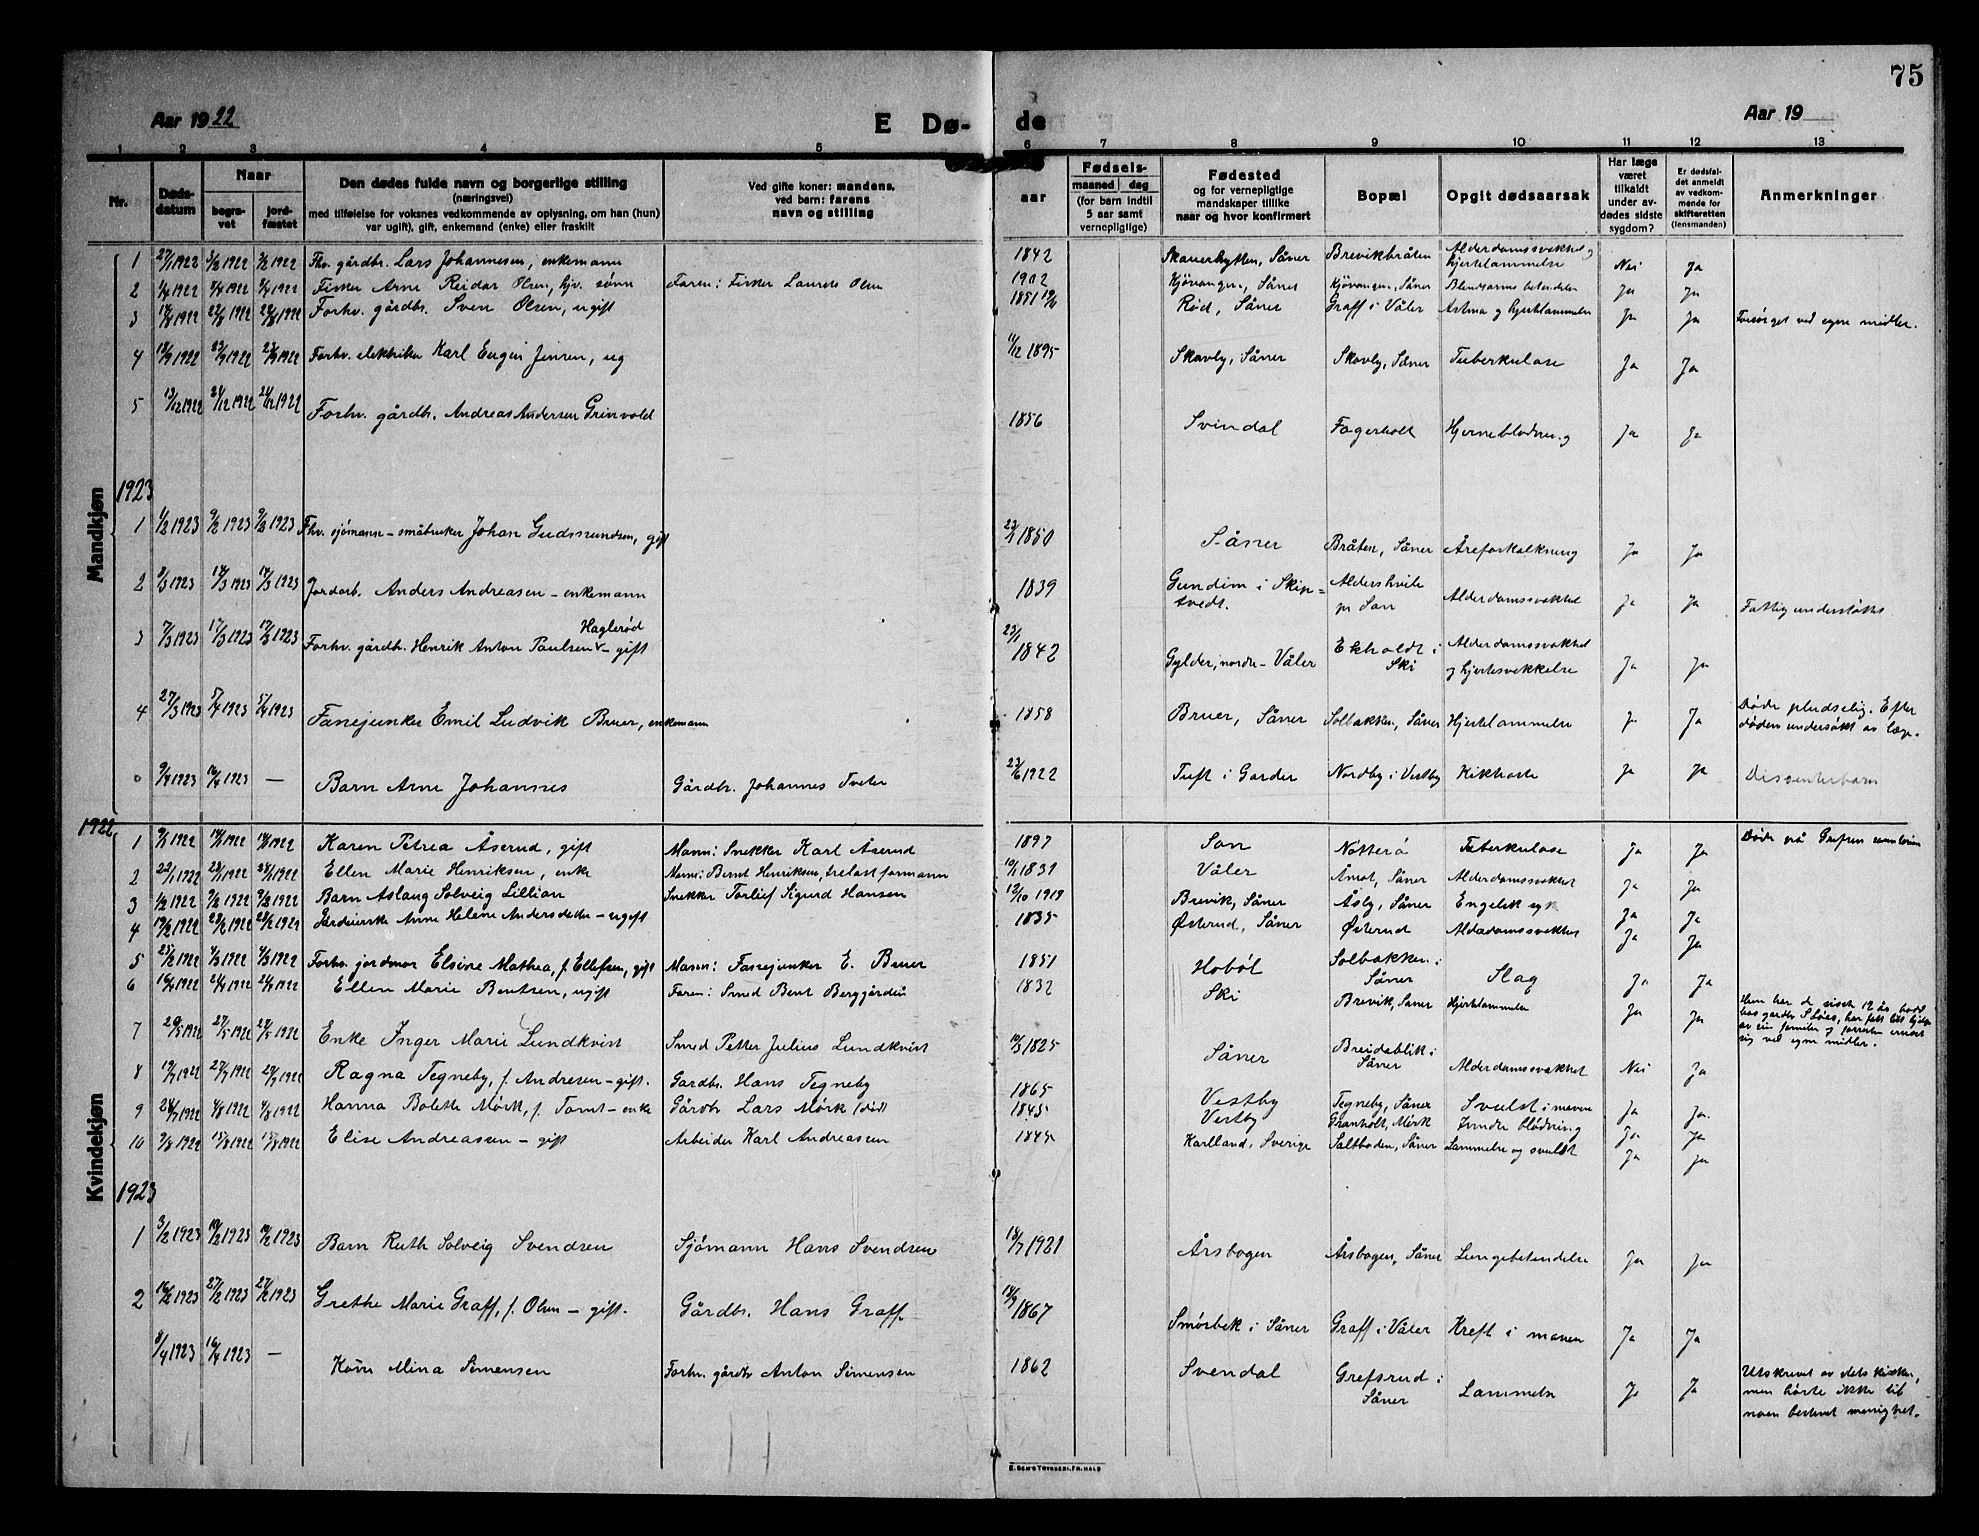 75
Aar 1922
E Dø- de
Aar 19
1 2 3 4 5 6 7 8 9 10 11 12 13
Nr.
Døds-datum
Naar
begra-vet
jord-fæstet
Den dødes fulde navn og borgerlige stilling
(næringsvei)
med tilføielse for voksnes vedkommende av oplysning, om han (hun)
var ugift), gift, enkemand (enke) eller fraskilt
Ved gifte koner: mandens,
ved barn: farens
navn og stilling
aar
Fødsels-
maaned dag
(for barn indtil
5 aar samt
vernepligtige)
Fødested
og for vernepligtige
mandskaper tillike
naar og hvor konfirmert
Bopæl
Opgit dødsaarsak
Har læge
været
tilkaldt
under av-
dødes sidste
sygdom?
Er dødsfal-
det anmeldt
av vedkom-
mende for
skifteretten
(lensmanden)
Anmerkninger
Mandkjøn
1 27/1 1922 3/2 1922 3/2 1922 Fhv. gårdbr. Lars Johannesen, enkemann 1842 Skauerhytten, Såner Brevikbråten Alderdomssvakhet og hjertelammelse Nei Ja
2 1/4 1922 7/4 1922 7/4 1922 Fisker Arne Reidar Olsen, hjv. sønn Faren: Fisker Laurits Olsen 1902 Kjøvangen, Såner Kjøvangen, Såner Blindtarms betendelse Ja Ja
3 17/8 1922 22/8 1922 22/8 1922 Forhv. gårdbr. Sven Olsen, ugift 1851 Rød, Såner Graff i Våler Astma og hjertelammelse Ja Ja Forsørget ved egne midler.
4 18/9 1922 23/9 1922 23/9 1922 Forhv. elektriker Karl Eugen Jensen, ug 11/12 1895 Skovby, Såner Skovby, Såner Tuberkulose Ja Ja
5 13/12 1922 21/12 1922 21/12 1922 Forhv. gårdbr. Andreas Andersen Grinvold 1856 Svindal Fagerholt Hjerneblødning Ja Ja
1923
1 1/2 1923 9/2 1923 9/2 1923 Fhv. sjømann - småbruker Johan Gudmundsen, gift 1850 Såner Bråten, Såner Åreforkalkning Ja Ja
2 2/3 1923 14/3 1923 14/3 1923 Jordarb. Anders Andreasen - enkemann 1839 Gundim i Skip=tvedt. Aldershvile pr Son Alderdomssvakhet Ja Ja Fattigunderstøttet
3 7/3 1923 17/3 1923 17/3 1923 Forhv. gårdbr. Henrik Anton Paulsen Haglerød - gift 23/1 1842 Gylder, nordre - Våler Ekholdt i Ski Alderdomssvakhet og hjertesvekkelse Ja Ja
4 27/3 1923 5/4 1923 5/4 1923 Fanejunker Emil Ludvik Bruer, enkemann 1858 Bruer, Såner Solbakken, Såner Hjertelammelse Ja Ja Døde pludselig. Efter døden undersøkt av læge.
0 9/4 1923 16/4 1923 — Barn Arne Johannes Gårdbr. Johannes Tveter 23/6 1922 Tuft i Garder Nordby i Vestby Kikhoste Ja Ja Dissenterbarn
1922
Kvindekjøn
1 9/1 1922 14/1 1922 14/1 1922 Karen Petrea Åserud, gift Mann: Snekker Karl Åserud 1897 Son Nøtterø Tuberkulose Ja Ja Døde på Grefsen
2 22/1 1922 28/1 1922 28/1 1922 Ellen Marie Henriksen, enke Mann: Bernt Henriksen, trelastformann 10/1 1831 Våler Åmot, Såner Alderdomssvakhet Ja Ja
3 1/2 1922 9/2 1922 9/2 1922 Barn Aslaug Solveig Lillian Snekker Torleif Sigurd Hansen 12/10 1919 Brevik, Såner Åsly, Såner Engelsk syk Ja Ja
4 19/2 1922 28/2 1922 28/2 1922 Gårdeierske Anne Helene Andersdatter - ugift 1835 Østerud, Såner Østerud Alderdomssvakhet Ja Ja
5 25/2 1922 4/3 1922 4/3 1922 Forhv. jordmor Elsine Mathea, f. Ellefsen, gift Mann: Fanejunker E. Bruer 1851 Hobøl Solbakken i Såner Slag Ja Ja
6 1922 1922 1922 Ellen Marie Bentsen, ugift Faren: Smed Bent Berggården 1832 Ski Brevik, Såner Hjertelammelse Ja Ja Hun har de sidste 12 år bodd hos gårdbr
7 20/5 1922 27/5 1922 27/5 1922 Enke Inger Marie Lundkvist Smed Petter Julius Lundkvist 10/3 1825 Såner Breidablik i Såner Alderdomssvakhet Nei Ja
8 19/7 1922 27/7 1922 27/7 1922 Ragna Tegneby, f. Andresen - gift. Gardbr. Hans Tegneby 1865 Vestby Tegneby, Såner Svulst i maven Ja Ja
9 1922 4/8 1922 4/8 1922 Hanna Bolette Mørk, f. Tomt - enke Gårdbr Lars Mørk (død) 1845 Vestby Granholt, Mörk Indre blødning Ja Ja
10 9/8 1922 15/8 1922 15/8 1922 Elise Andreasen - gift Arbeider Karl Andreasen 1845 Karlland, Sverige Saltboden, Såner Lammelse og svulst Ja Ja
1923
1 3/2 1923 10/2 1923 10/2 1923 Barn Ruth Solveig Svendsen Sjømann Hans Svendsen 18/7 1921 Årsbogen Årsbogen, Såner Lungebetendelse Ja Ja
2 16/2 1923 27/2 1923 27/2 1923 Grethe Marie Graff, f. Olsen - gift. Gårdbr. Hans Graff 1867 Smørbek i Såner Graff i Våler Kreft i maven Ja Ja
8/4 1923 16/4 1923 — Kone Mina Simensen Forhv. gårdbr Anton Simensen 1862 Svendal Grefsrud i Såner Lammelse Ja Ja Utskrevet av statskirken, men hørte ikke til noen bestemt menighet.